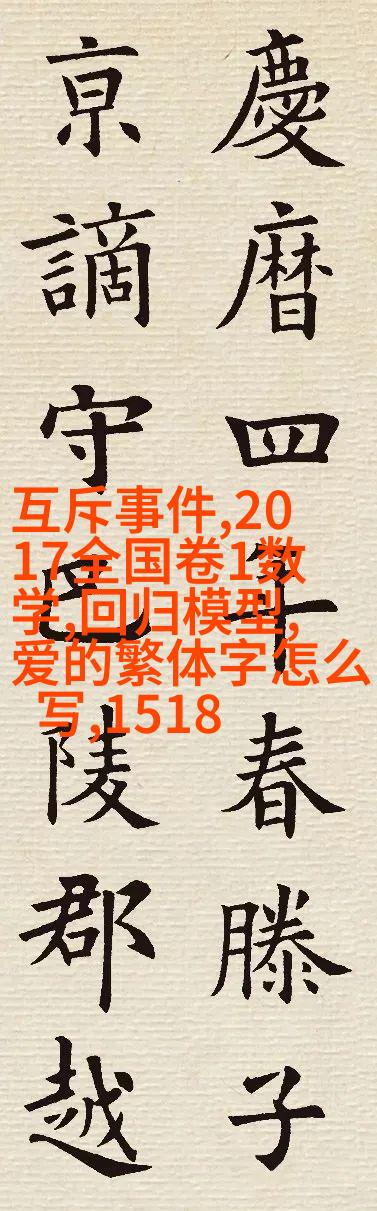 慶曆四年春滕子
京謫守巴陵郡越
互斥事件,20
17全国卷1数
学,回归模型,
爱的繁体字怎么
写,1518